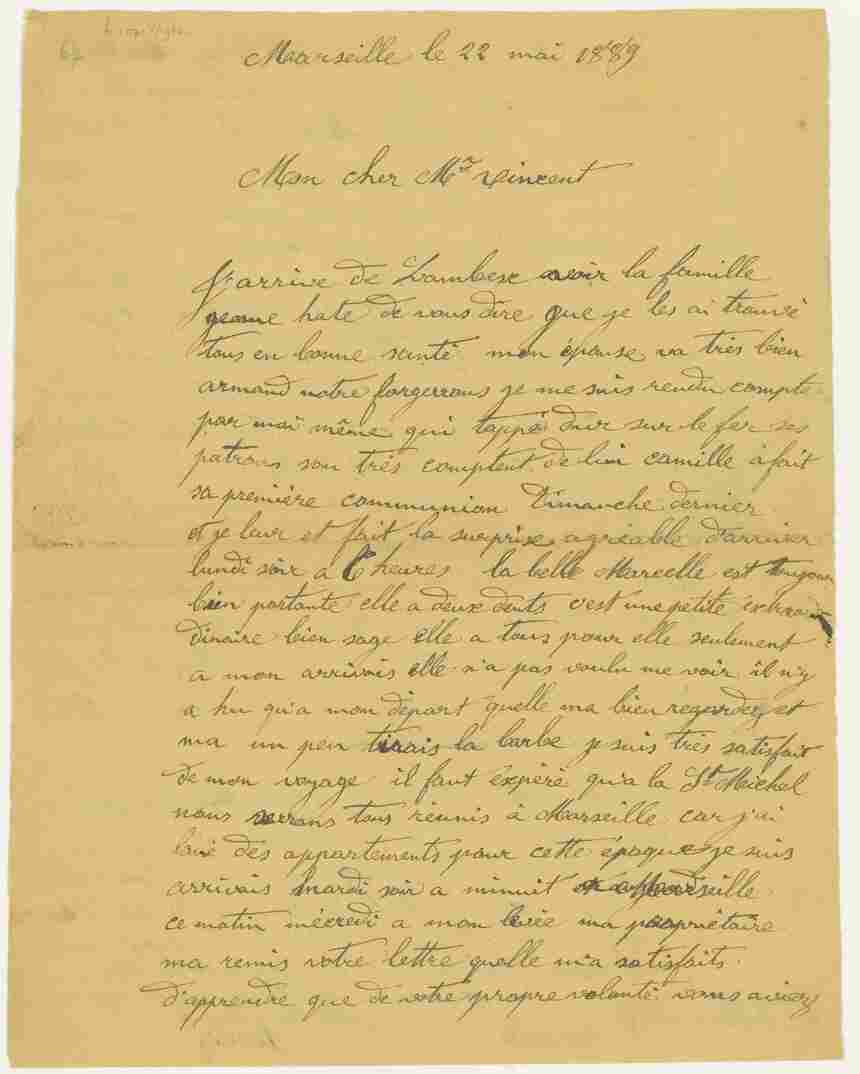 Marseille le 22 mai 1889
Mon cher Mr Vincent
J'arrive de Lambesc voir la famille
jeame hate de vous dire que je les ai trouvé
tous en bonne santé mon épouse va très bien
armand notre forgerrons je me suis rendu compte
par moi même qui tappé dur sur le fer ses
patrons son très comptent de lui camille à fait
sa première communion Dimanche dernier
et je leur et fait la surprise agréable d'arriver
lundi soir a 6 heures la belle Marcelle est toujours
bien portante elle a deux dents c'est une petite extraor
dinaire bien sage elle a tous pour elle seulement
a mon arrivais elle n'a pas voulu me voir il n'y
a hu qu'a mon départ quelle ma bien regardez et
ma un peu tirais la barbe je suis très satisfait
de mon voyage il faut éspéré qu'a la St Michel
nous serrons tous réunis à Marseille car j'ai
loué des appartements pour cette époque je suis
arrivais mardi soir a minuit a Marseille
ce matin mécredi a mon levée ma propriétaire
ma remis votre lettre quelle m'a satisfaits
d'apprendre que de votre propre volonté vous aviez